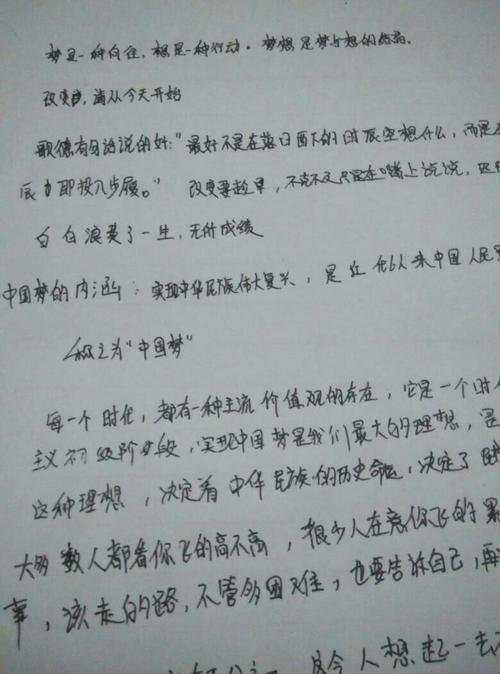 梦是一种向往，想是一种行动。梦想是梦与想的结晶。
改变，请从今天开始
歌德有句话说的好："最好不是在落日西下的时辰空想什么，而是
辰 即投入步履。" 改变要趁早，不只是在嘴上说说，
白白浪费了一生，无所成绩
中国梦的内涵：实现中华民族伟大复兴，是近代以来中国人民
称之为"中国梦"
每一个时代，都有一种主流价值观的存在，它是一个时
主义初级阶段，实现中国梦是我们最大的理想，是
这种理想，决定着中华民族的历史命运，决定了
大多数人都看你飞的高不高，很少人在意你飞的累
事，该走的路，不管多困难，也要告诉自己，再
人想起一去